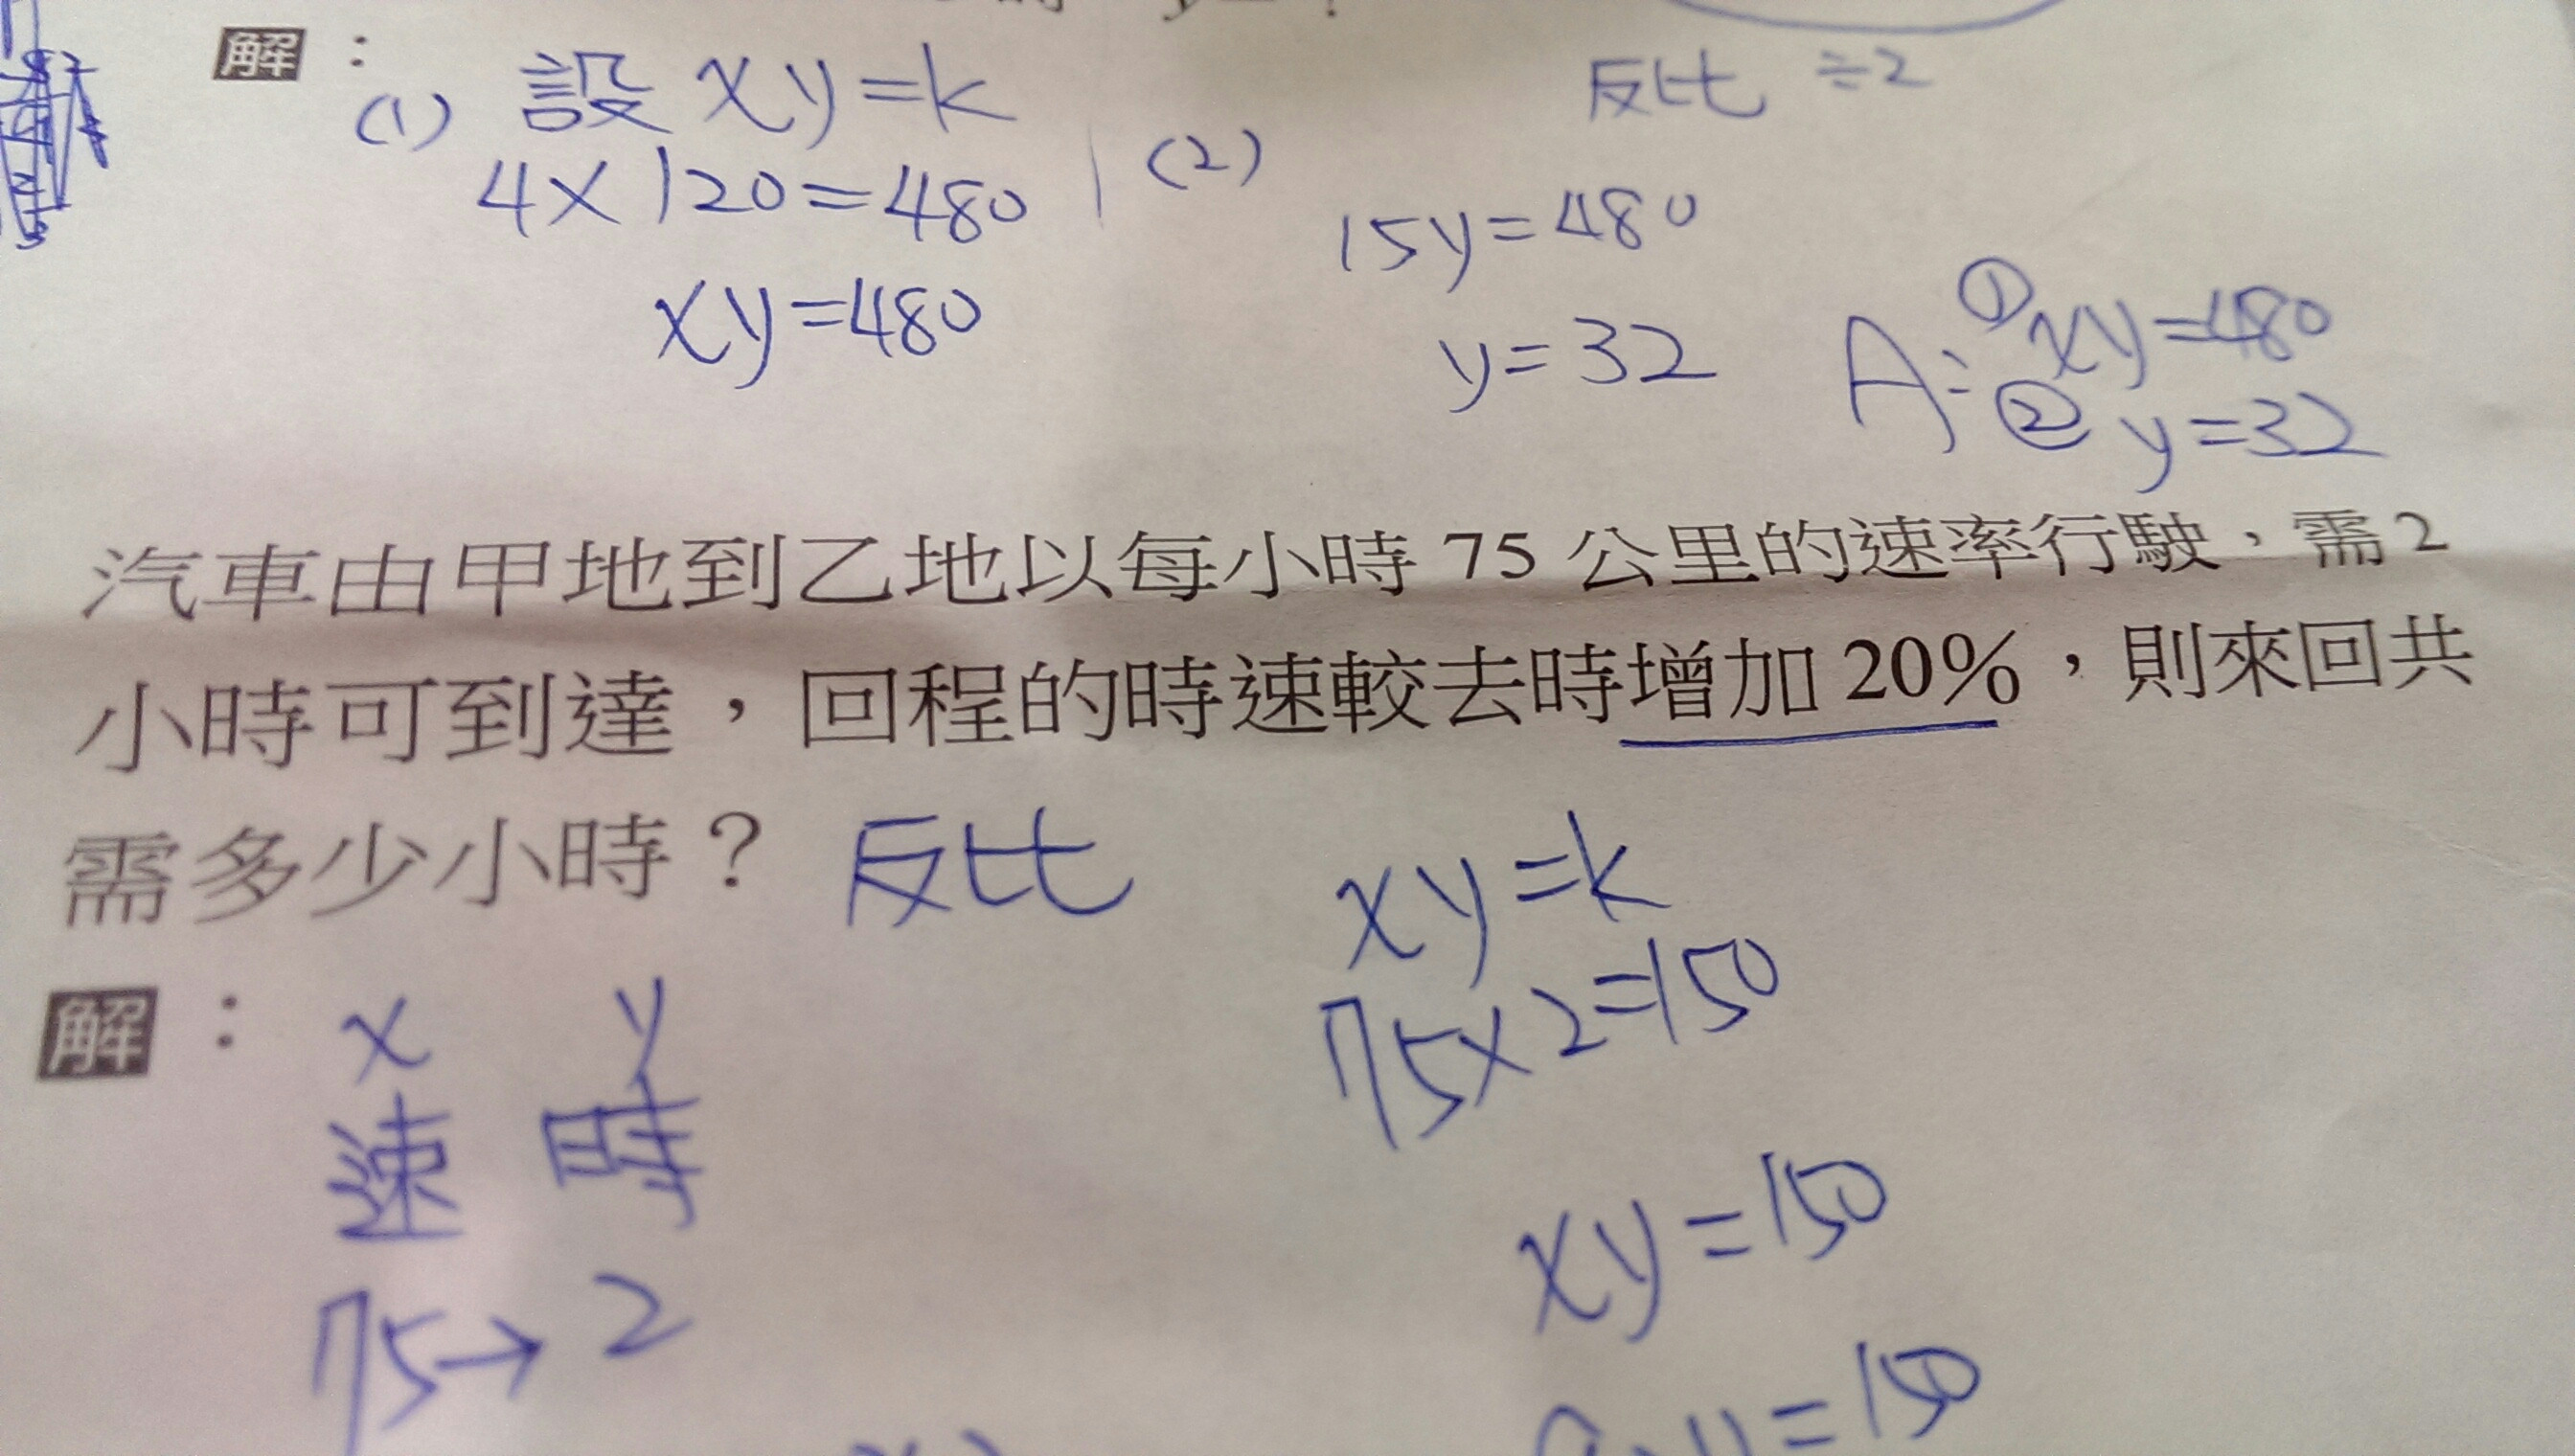 解：
(1) 設 xy=k
4×120=480
xy=480
反比 ÷2
(2)
15y=480
y=32
A: ① xy=480
② y=32
汽車由甲地到乙地以每小時 75 公里的速率行駛，需 2
小時可到達，回程的時速較去時增加 20%，則來回共
需多少小時？ 反比
xy=k
75×2=150
xy=150
解：
x y
速 時
75→2
y=150